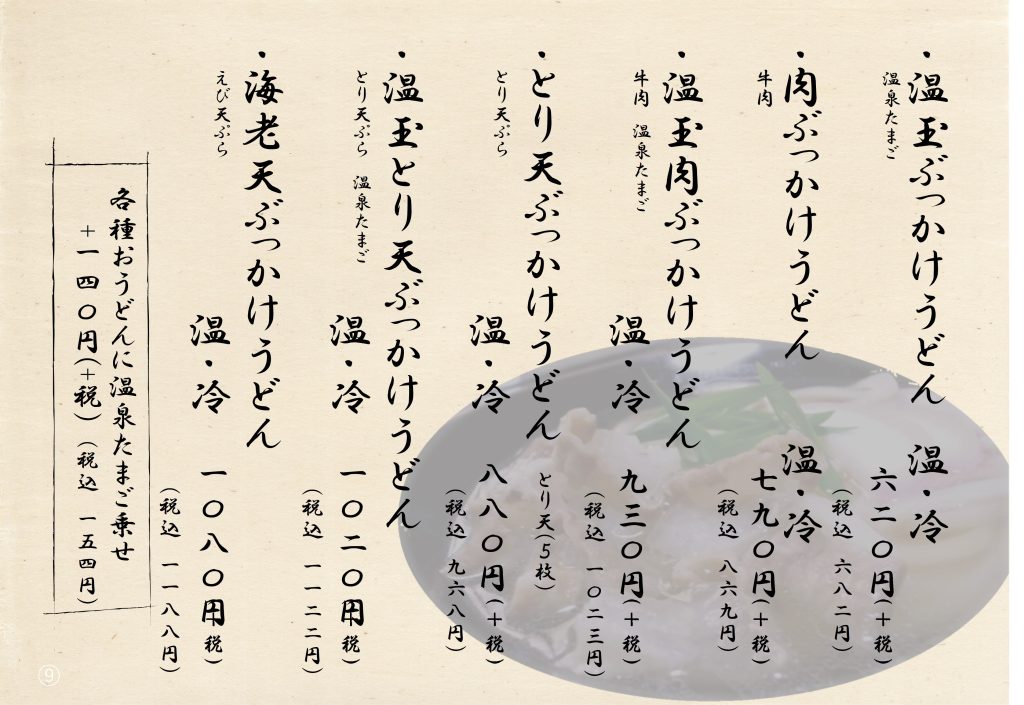 ・温玉ぶっかけうどん 温・冷
温泉たまご
六二〇円(+税)
(税込 六八二円)
・肉ぶっかけうどん 温・冷
牛肉
七九〇円(+税)
(税込 八六九円)
・温玉肉ぶっかけうどん
牛肉 温泉たまご
温・冷 九三〇円(+税)
(税込 一〇二三円)
・とり天ぶっかけうどん とり天(5枚)
とり天ぷら
温・冷 八八〇円(+税)
(税込 九六八円)
・温玉とり天ぶっかけうどん
とり天ぷら 温泉たまご
温・冷 一〇二〇円(+税)
(税込 一一二二円)
・海老天ぶっかけうどん
えび天ぷら
温・冷 一〇八〇円(+税)
(税込 一一八八円)
各種おうどんに温泉たまご乗せ
+一四〇円(+税)(税込 一五四円)
⑨